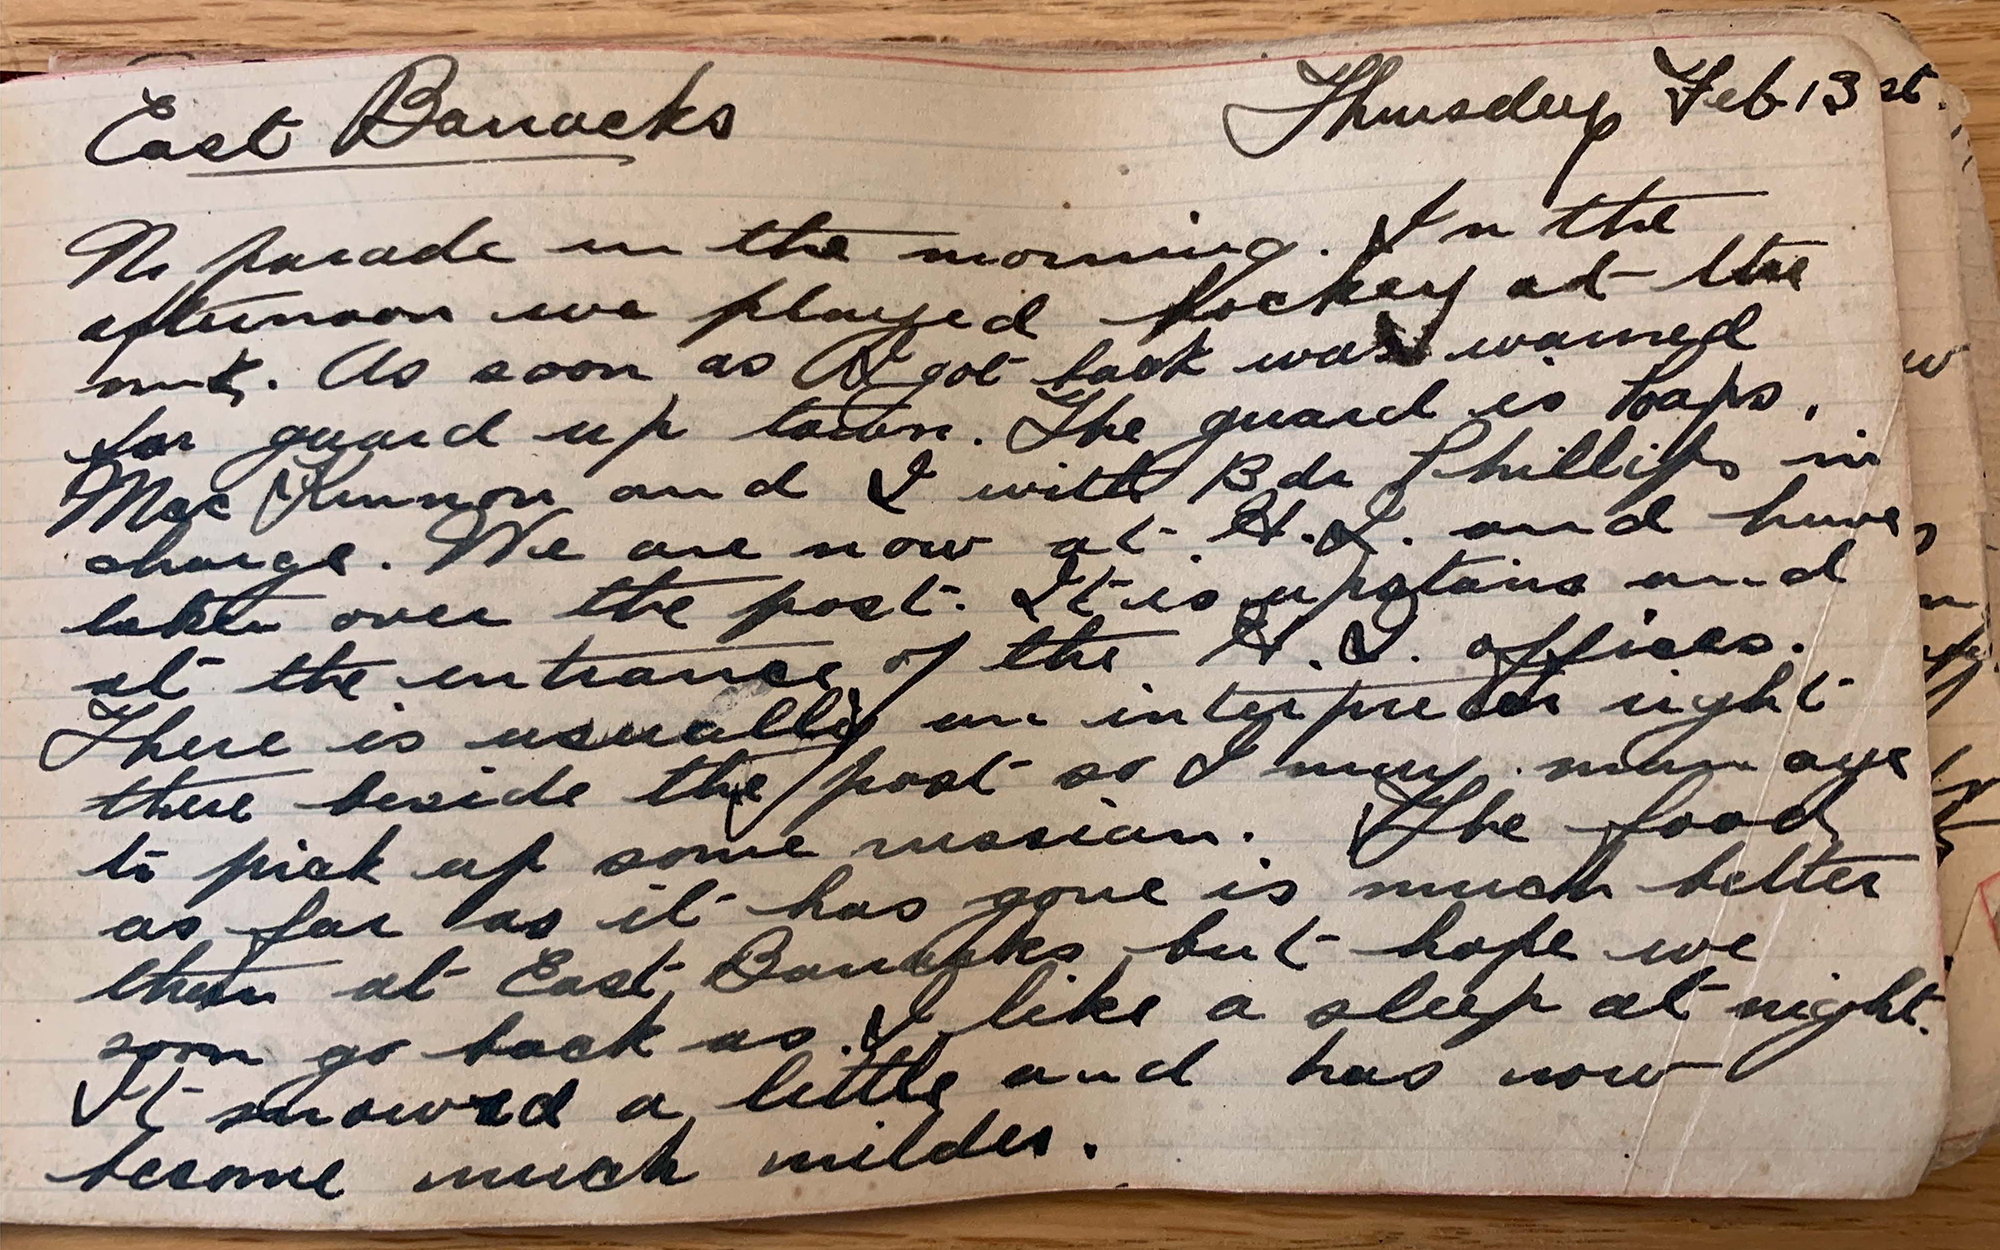 East Barracks Thursday Feb 13 st.
No parade in the morning. In the
afternoon we played hockey at the
rink. As soon as I got back was warned
for guard up town. The guard is
MacKinnon and I with Bdr Phillips in
charge. We are now at and have
taken over the post. It is upstairs and
at the entrance of the offices.
There is usually an interpreter right
there beside the post so I may manage
to pick up some russian. The food
as far as it has gone is much better
than at East Barracks but hope we
soon go back as I like a sleep at night.
It snowed a little and has now
become much milder.